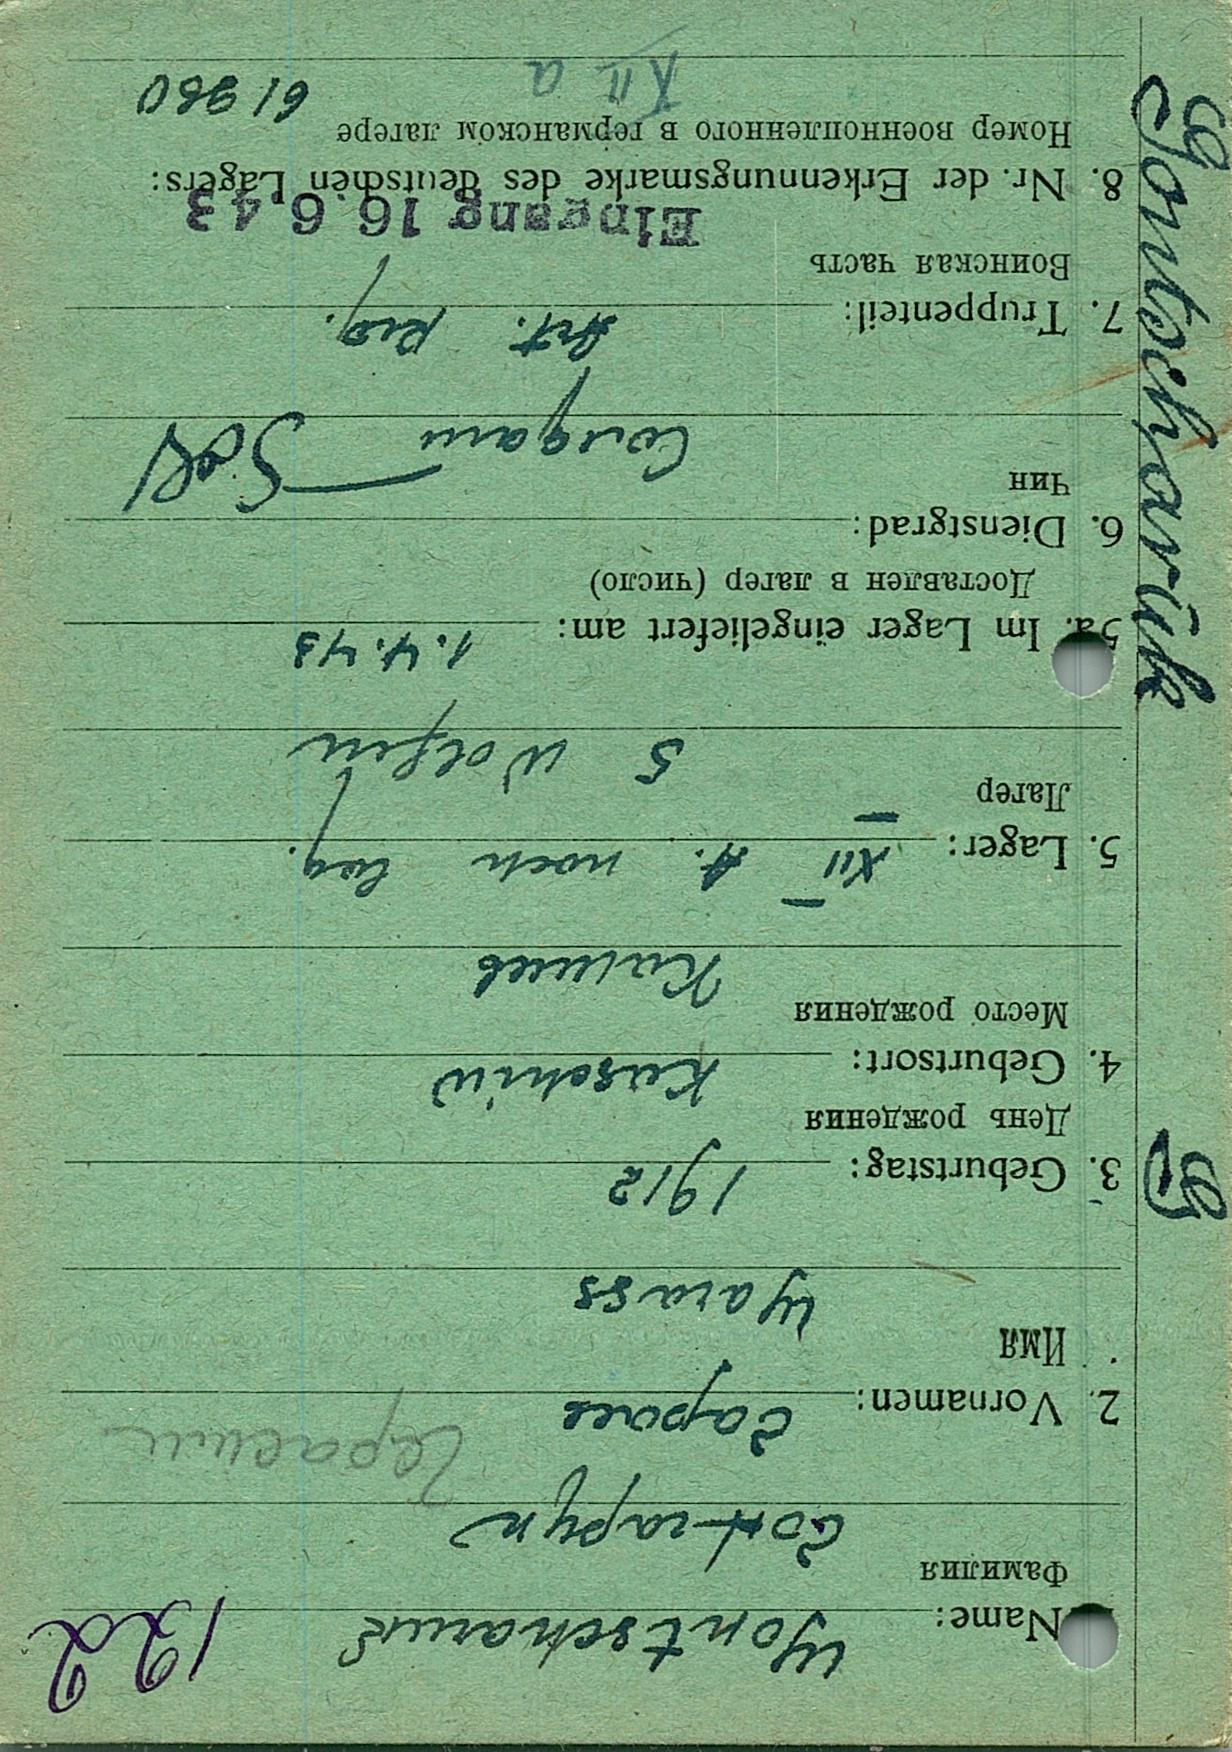 122
1. Name: Gontscharuk
Фамилия
Гончарук
Герасим
2. Vornamen:
Имя
3. Geburtstag: 1912
День рождения
4. Geburtsort:
Место рождения
5. Lager: XII A. noch Lag.
Лагер
5 Wolfen
5a. Im Lager eingeliefert am: 1.4.43
Доставлен в лагер (число)
6. Dienstgrad:
Чин
Солдат Sold
7. Truppenteil: Art. Reg.
Воинская часть
Eingang 16.6.43
8. Nr. der Erkennungsmarke des deutschen Lagers:
Номер военнопленного в германском лагере
XII a
Gontscharuk
G